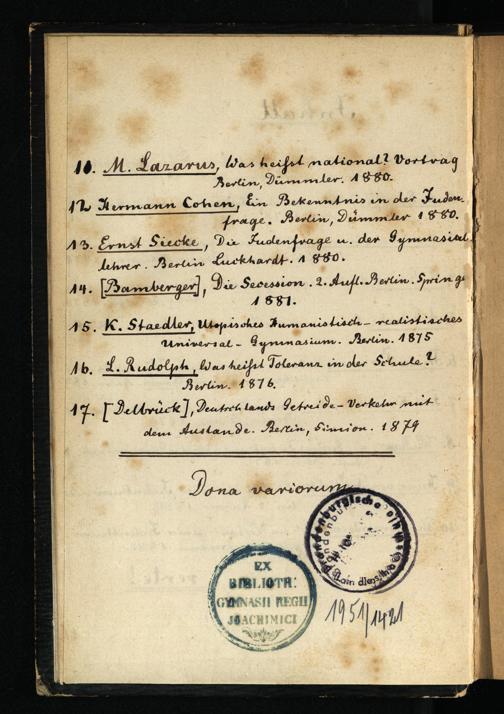 11. M. Lazarus, Was heißt national? Vortrag
Berlin, Dümmler. 1880.
12 Hermann Cohen, Ein Bekenntnis in der Juden-
frage. Berlin, Dümmler 1880.
13. Ernst Siecke, Die Judenfrage u. der Gymnasial
lehrer. Berlin Luckhardt. 1880.
14. [Bamberger], Die Secession. 2. Aufl. Berlin. Springe
1881.
15. K. Staedler, Utopisches Humanistisch-realistisches
Universal-Gymnasium. Berlin. 1875
16. L. Rudolph, Was heißt Toleranz in der Schule?
Berlin. 1876.
17. [Delbrück], Deutschlands Getreide-Verkehr mit
dem Auslande. Berlin, Simion. 1879
Dona variorum
EX
BIBLIOTH:
GYMNASII REGII
JOACHIMICI
1951/1421